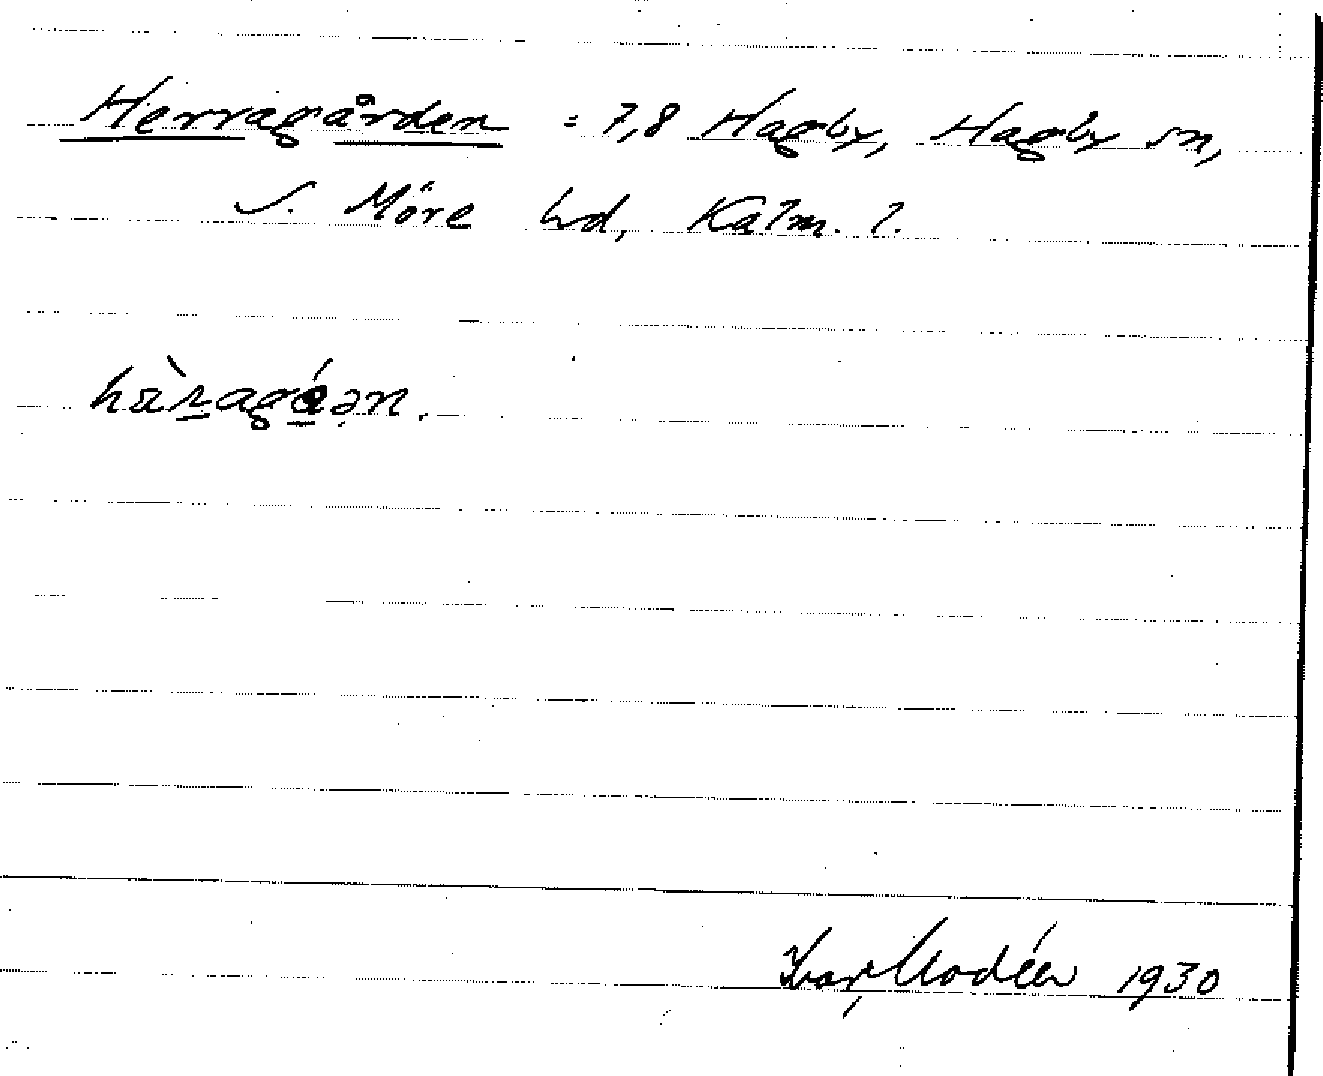 Herragården = 7,8 Hagby, Hagby sn,
S. Möre hd, Kalm. l.
hàragáən.
Ivar Modéer 1930